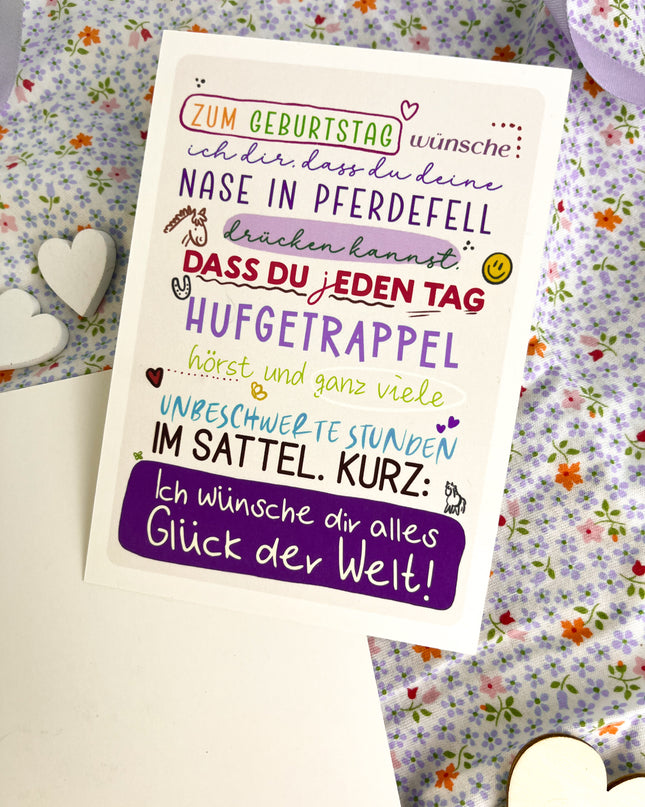 ZUM GEBURTSTAG wünsche
ich dir, dass du deine
NASE IN PFERDEFELL
drücken kannst.
DASS DU jEDEN TAG
HUFGETRAPPEL
hörst und ganz viele
UNBESCHWERTE STUNDEN
IM SATTEL. KURZ:
Ich wünsche dir alles
Glück der Welt!